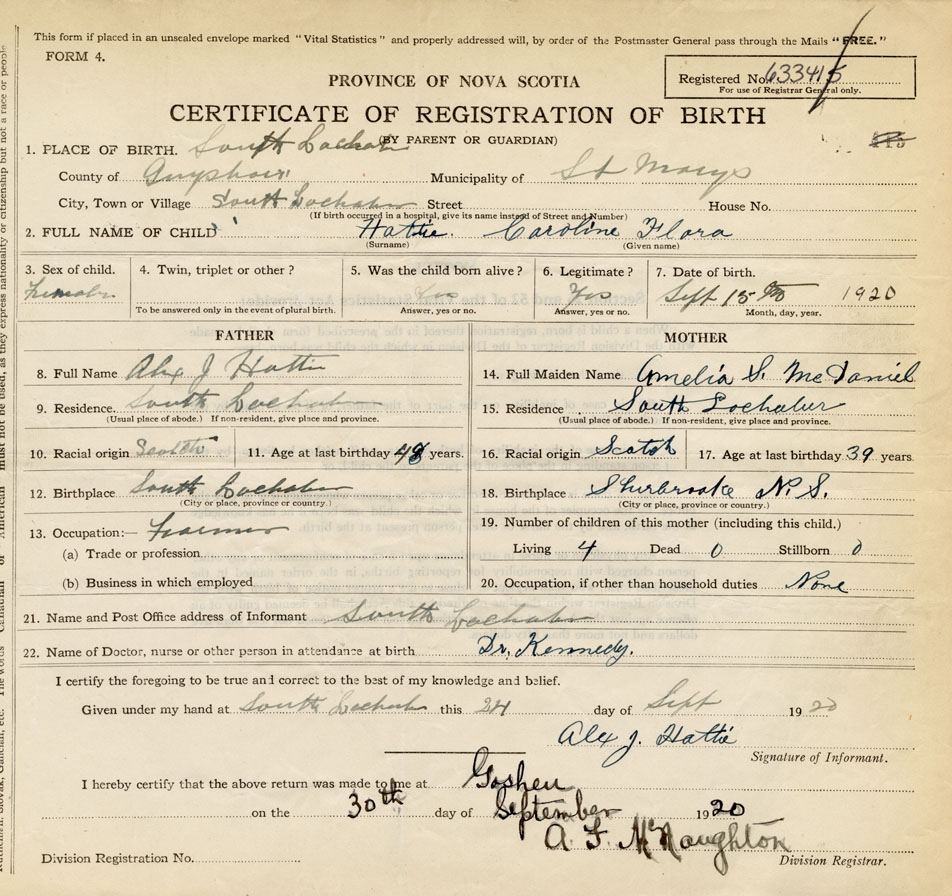 This form if placed in an unsealed envelope marked "Vital Statistics" and properly addressed will, by order of the Postmaster General pass through the Mails "FREE."
FORM 4.
Registered No. 633415
For use of Registrar General only.
PROVINCE OF NOVA SCOTIA
CERTIFICATE OF REGISTRATION OF BIRTH
(BY PARENT OR GUARDIAN)
1. PLACE OF BIRTH. South Lochaber
County of Guysboro Municipality of St Marys
City, Town or Village South Lochaber Street House No.
(If birth occurred in a hospital, give its name instead of Street and Number)
2. FULL NAME OF CHILD Hattie. Caroline Flora
(Surname) (Given name)
3. Sex of child. 4. Twin, triplet or other? 5. Was the child born alive? 6. Legitimate? 7. Date of birth.
Female Yes Yes Sept 15th 1920
To be answered only in the event of plural birth. Answer, yes or no. Answer, yes or no. Month, day, year.
FATHER MOTHER
8. Full Name Alex J Hattie 14. Full Maiden Name Amelia S. McDaniel
9. Residence. South Lochaber 15. Residence South Lochaber
(Usual place of abode.) If non-resident, give place and province. (Usual place of abode.) If non-resident, give place and province.
10. Racial origin Scotch 11. Age at last birthday 48 years. 16. Racial origin Scotch 17. Age at last birthday 39 years
12. Birthplace South Lochaber 18. Birthplace Sherbrooke N. S.
(City or place, province or country.) (City or place, province or country.)
13. Occupation:— Farmer 19. Number of children of this mother (including this child.)
(a) Trade or profession Living 4 Dead 0 Stillborn 0
(b) Business in which employed 20. Occupation, if other than household duties None
21. Name and Post Office address of Informant South Lochaber
22. Name of Doctor, nurse or other person in attendance at birth Dr. Kennedy.
I certify the foregoing to be true and correct to the best of my knowledge and belief.
Given under my hand at South Lochaber this 24 day of Sept 1920
Alex J. Hattie
Signature of Informant.
I hereby certify that the above return was made to me at Goshen
on the 30th day of September 1920
A. F. McNaughton
Division Registration No. Division Registrar.